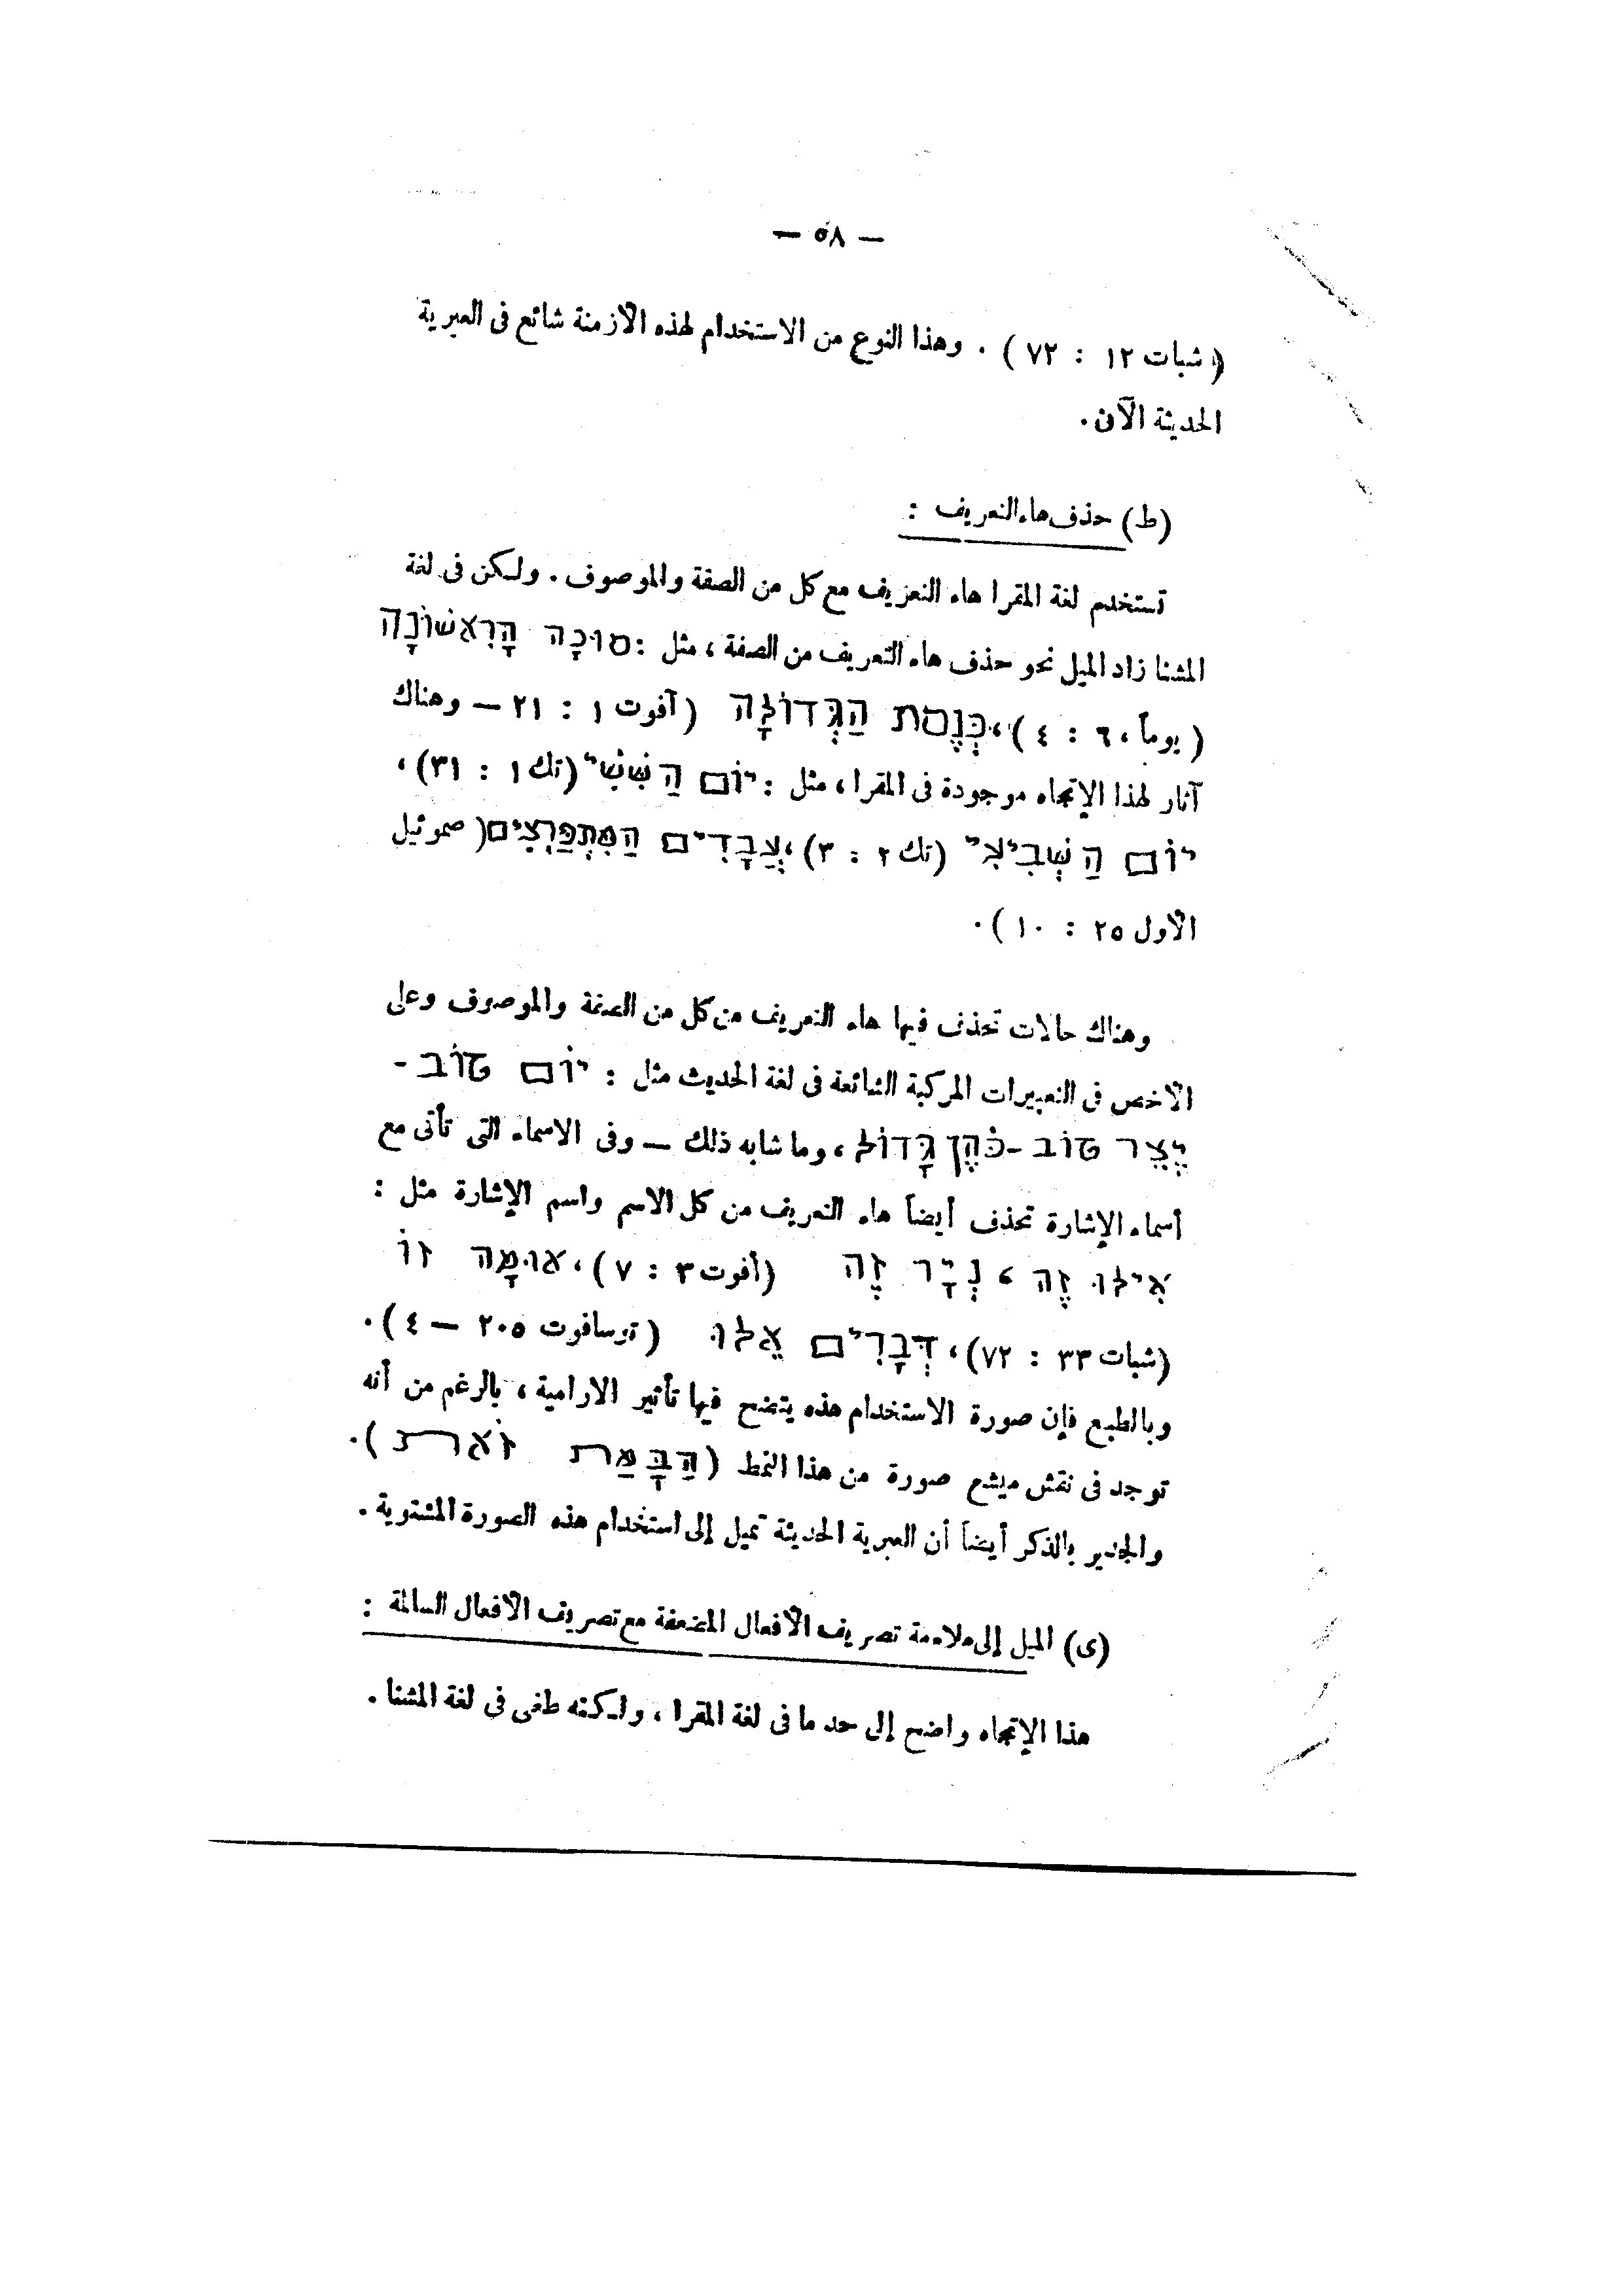 — ٥٨ —
( شبات ١٢ : ٧٢ ) . وهذا النوع من الاستخدام لهذه الأزمنة شائع فى العبرية
الحديثة الآن .
(ط) حذف هاء التعريف :
تستخدم لغة المقرا هاء التعريف مع كل من الصفة والموصوف . ولكن فى لغة
المشنا زاد الميل نحو حذف هاء التعريف من الصفة ، مثل : סוּכָּה הָרִאשׁוֹנָה
( يوماً ، ٦ : ٤ ) ، כְּנֶסֶת הַגְּדוֹלָה ( آفوت ١ : ٢١ — وهناك
آثار لهذا الإتجاه موجودة فى المقرا ، مثل : יוֹם הַשִּׁשִּׁי (تك ١ : ٣١) ،
יוֹם הַשְּׁבִיעִי (تك ٢ : ٣) ، עֲבָדִים הַמִּתְפַּרְצִים ( صموئيل
الأول ٢٥ : ١٠ ) .
وهناك حالات تحذف فيها هاء التعريف من كل من الصفة والموصوف وعلى
الأخص فى التعبيرات المركبة الشائعة فى لغة الحديث مثل : יוֹם טוֹב -
יֵצֶר טוֹב - כֹּהֵן גָּדוֹל ، وما شابه ذلك — وفى الاسماء التى تأتى مع
أسماء الإشارة تحذف أيضاً هاء التعريف من كل الاسم واسم الإشارة مثل :
אִילוּ זֶה ، נִיָּר זֶה (أفوت ٣ : ٧) ، אוּמָּה זוֹ
(شبات ٣٣ : ٧٢) ، דְּבָרִים אֵלוּ ( توسافوت ٢٠٥ — ٤ ) .
وبالطبع فإن صورة الاستخدام هذه يتضح فيها تأثير الارامية ، بالرغم من أنه
توجد فى نقش ميشع صورة من هذا النمط ( הַבָּמַת זֹאת ) .
والجدير بالذكر أيضاً أن العبرية الحديثة تميل إلى استخدام هذه الصورة المشنوية .
(ى) الميل إلى ملاءمة تصريف الأفعال المضعفة مع تصريف الأفعال السالمة :
هذا الإتجاه واضح إلى حد ما فى لغة المقرا ، ولكنه طغى فى لغة المشنا .